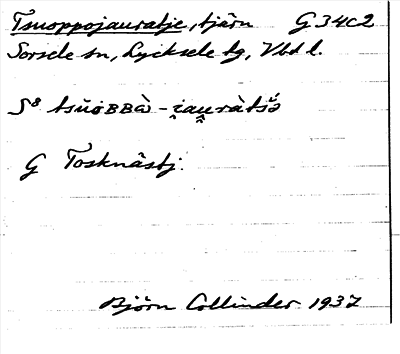 Tsuoppojauratje, tjärn G 34c2
Sorsele sn, Lycksele lg, Vbd l.
S⁸ tsŭoʙʙὰ - i̭au̯ràtsə̆
G Tosknästj.
Björn Collinder 1937